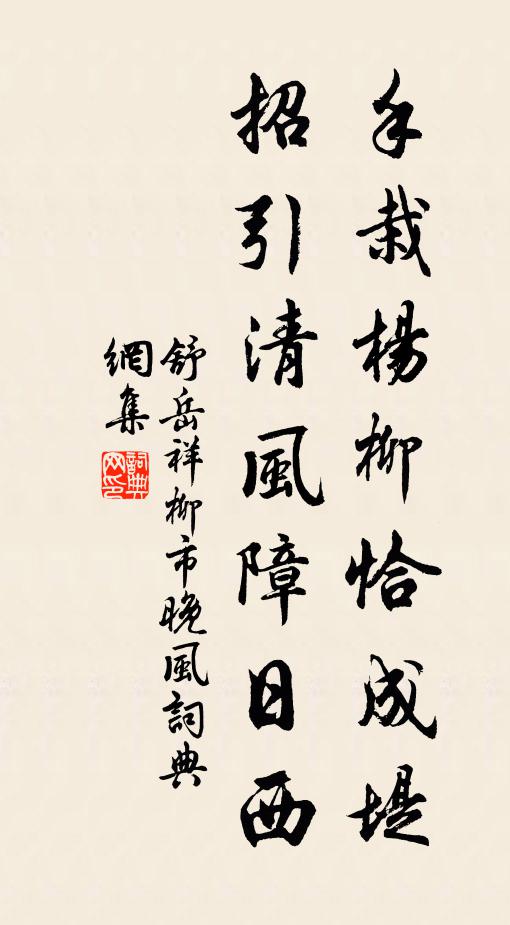 手栽楊柳恰成堤
招引清風障日西
舒岳祥柳市晚風詞典
網集
詞典
网印